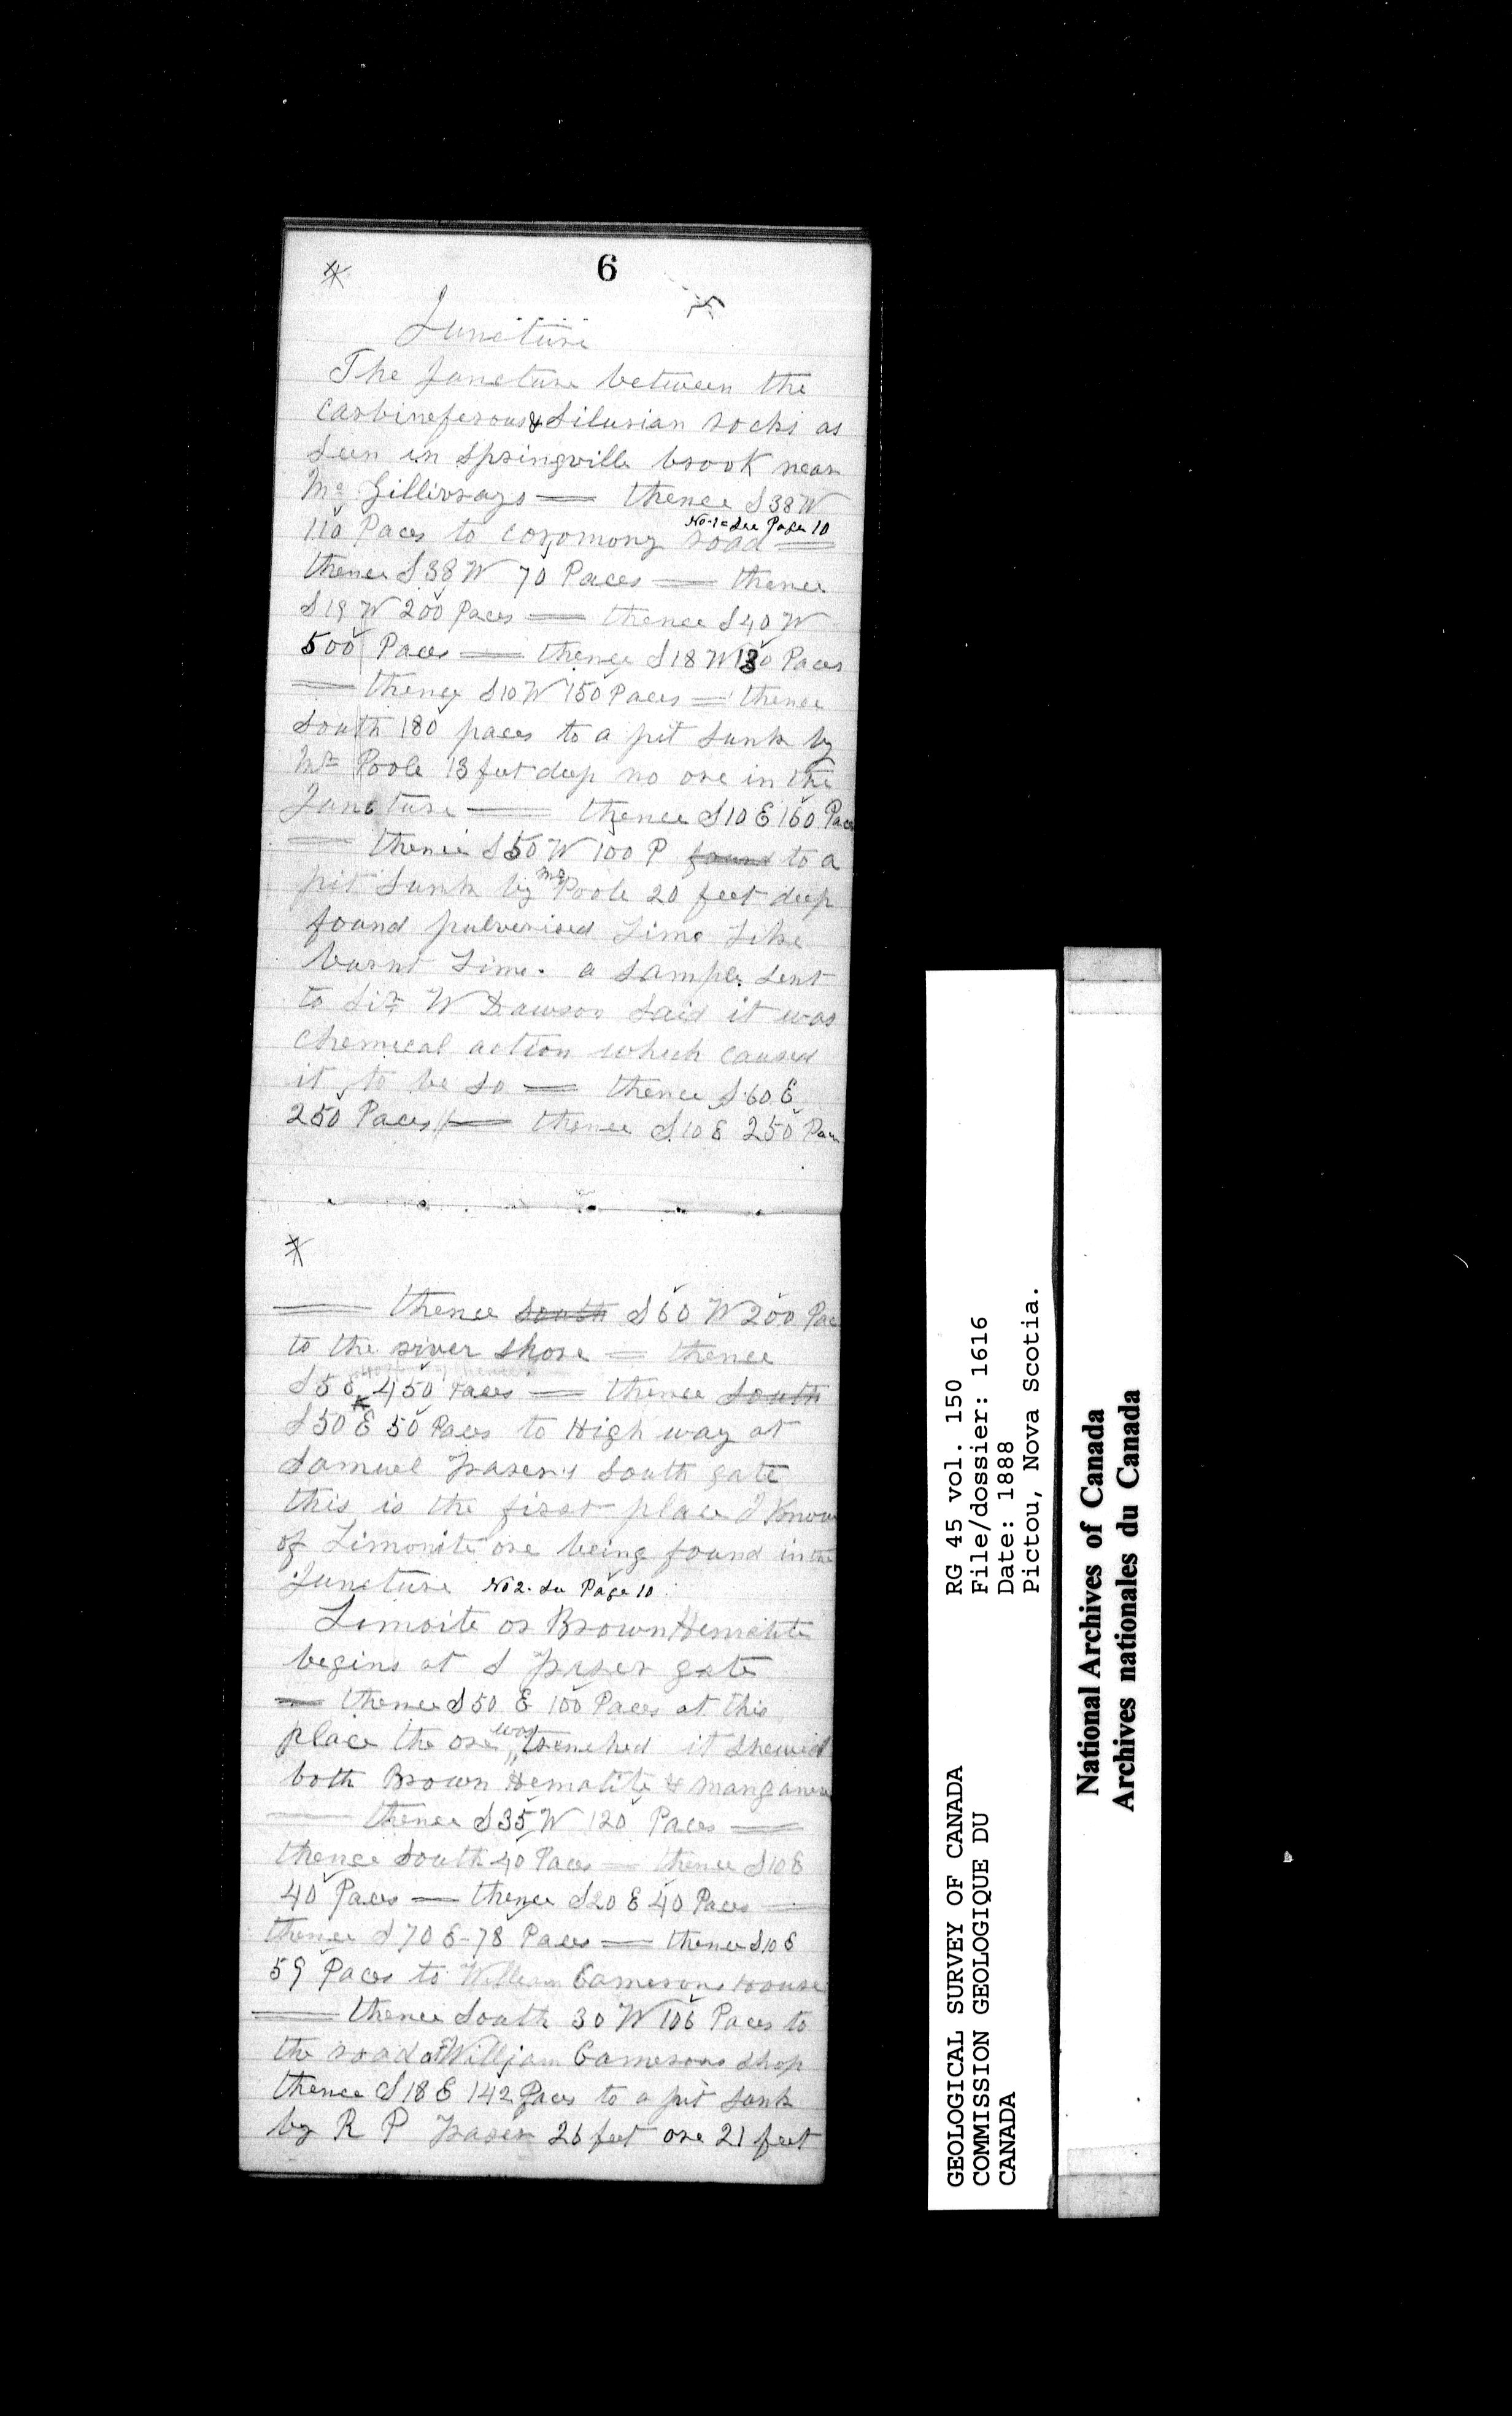 6
Juncture
The Juncture between the
Carbineferous & Silurian rocks as
Seen in Springville brook near
Mc Gillivrays — thence S 38 W
No-1 = See Page 10
110 Paces to coromony road =
thence S 38 W 70 Paces — thence
S 19 W 200 Paces — thence S 40 W
500 Paces — thence S 18 W 130 Paces
— thence S 10 W 150 Paces = thence
South 180 paces to a pit sunk by
Mr Poole 13 feet deep no ore in the
Juncture — thence S 10 E 160 Paces
— thence S 50 W 100 P found to a
pit Sunk by Mr Poole 20 feet deep
found pulverised Lime Like
burnt Lime. a sample sent
to Sir W Dawson Said it was
Chemical action which caused
it to be so — thence S 60 E
250 Paces — thence S 10 E 250 Pac
— thence South S 60 W 200 Pac
to the river shore = thence
S 5 E 450 Paces — thence South
S 50 E 50 Paces to High way at
Samuel Frasers South gate
this is the first place I Know
of Limonite ore being found in the
Juncture No 2. See Page 10
Limoite or Brown Hematite
begins at S Fraser gate
— thence S 50 E 100 Paces at this
place the ore was trenched it shewed
both Brown Hematite & manganese
— thence S 35 W 120 Paces —
thence South 40 Paces — thence S 10 E
40 Paces — thence S 20 E 40 Paces —
thence S 70 E - 78 Paces — thence S 10 E
59 Paces to William Camerons House
— thence South 30 W 106 Paces to
the road at William Camerons shop
thence S 18 E 142 Paces to a pit sunk
by R P Fraser 26 feet ore 21 feet
GEOLOGICAL SURVEY OF CANADA
COMMISSION GEOLOGIQUE DU
CANADA
RG 45 vol. 150
File/dossier: 1616
Date: 1888
Pictou, Nova Scotia.
National Archives of Canada
Archives nationales du Canada